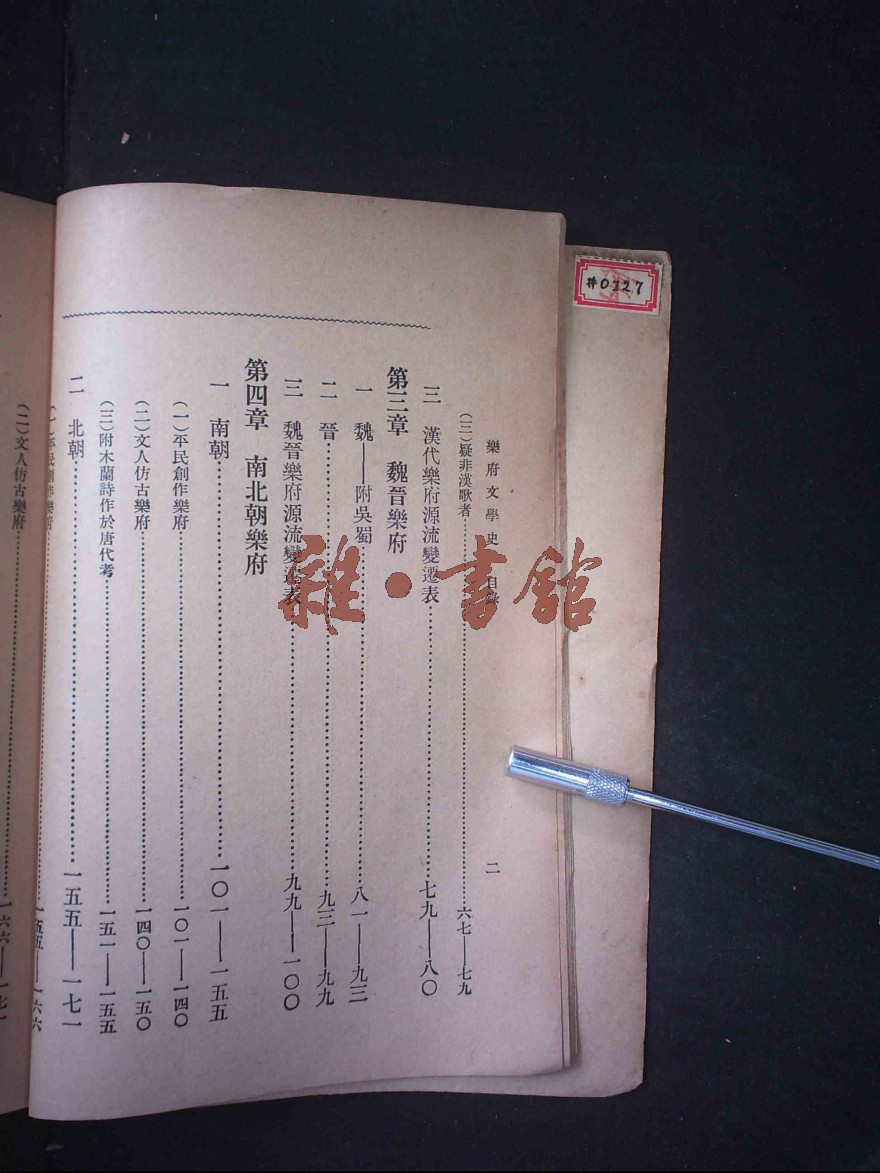 樂府文學史 目錄 二
(三)疑非漢歌者……六七——七九
三 漢代樂府源流變遷表……七九——八〇
第三章 魏晉樂府
一 魏——附吳蜀……八一——九三
二 晉……九三——九九
三 魏晉樂府源流變遷表……九九——一〇〇
第四章 南北朝樂府
一 南朝……一〇一——一五五
(一)平民創作樂府……一〇一——一四〇
(二)文人仿古樂府……一四〇——一五〇
(三)附木蘭詩作於唐代考……一五一——一五五
二 北朝……一五五——一七一
(一)平民創作樂府……一五五——一六六
(二)文人仿古樂府……一六六——一七一
雜·書館
#0327